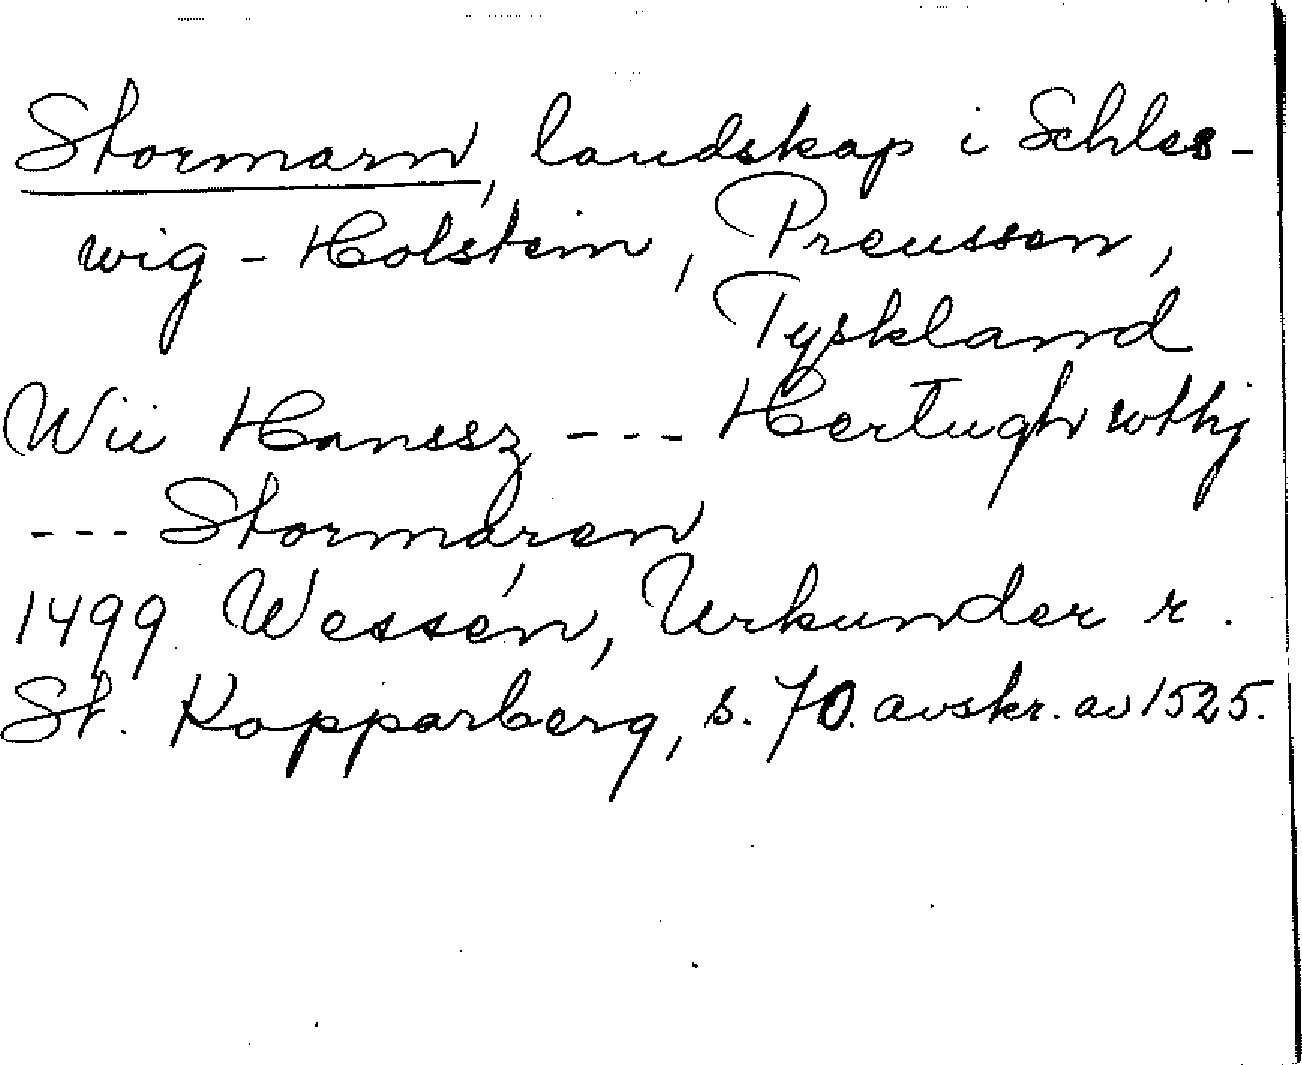 Stormarn, landskap i Schles-
wig-Holstein, Preussen,
Tyskland
Wii Hanssz --- Hertugh wthj
--- Stormaren
1499 Wessén, Urkunder r.
St. Kopparberg, s. 70. avskr. av 1525.